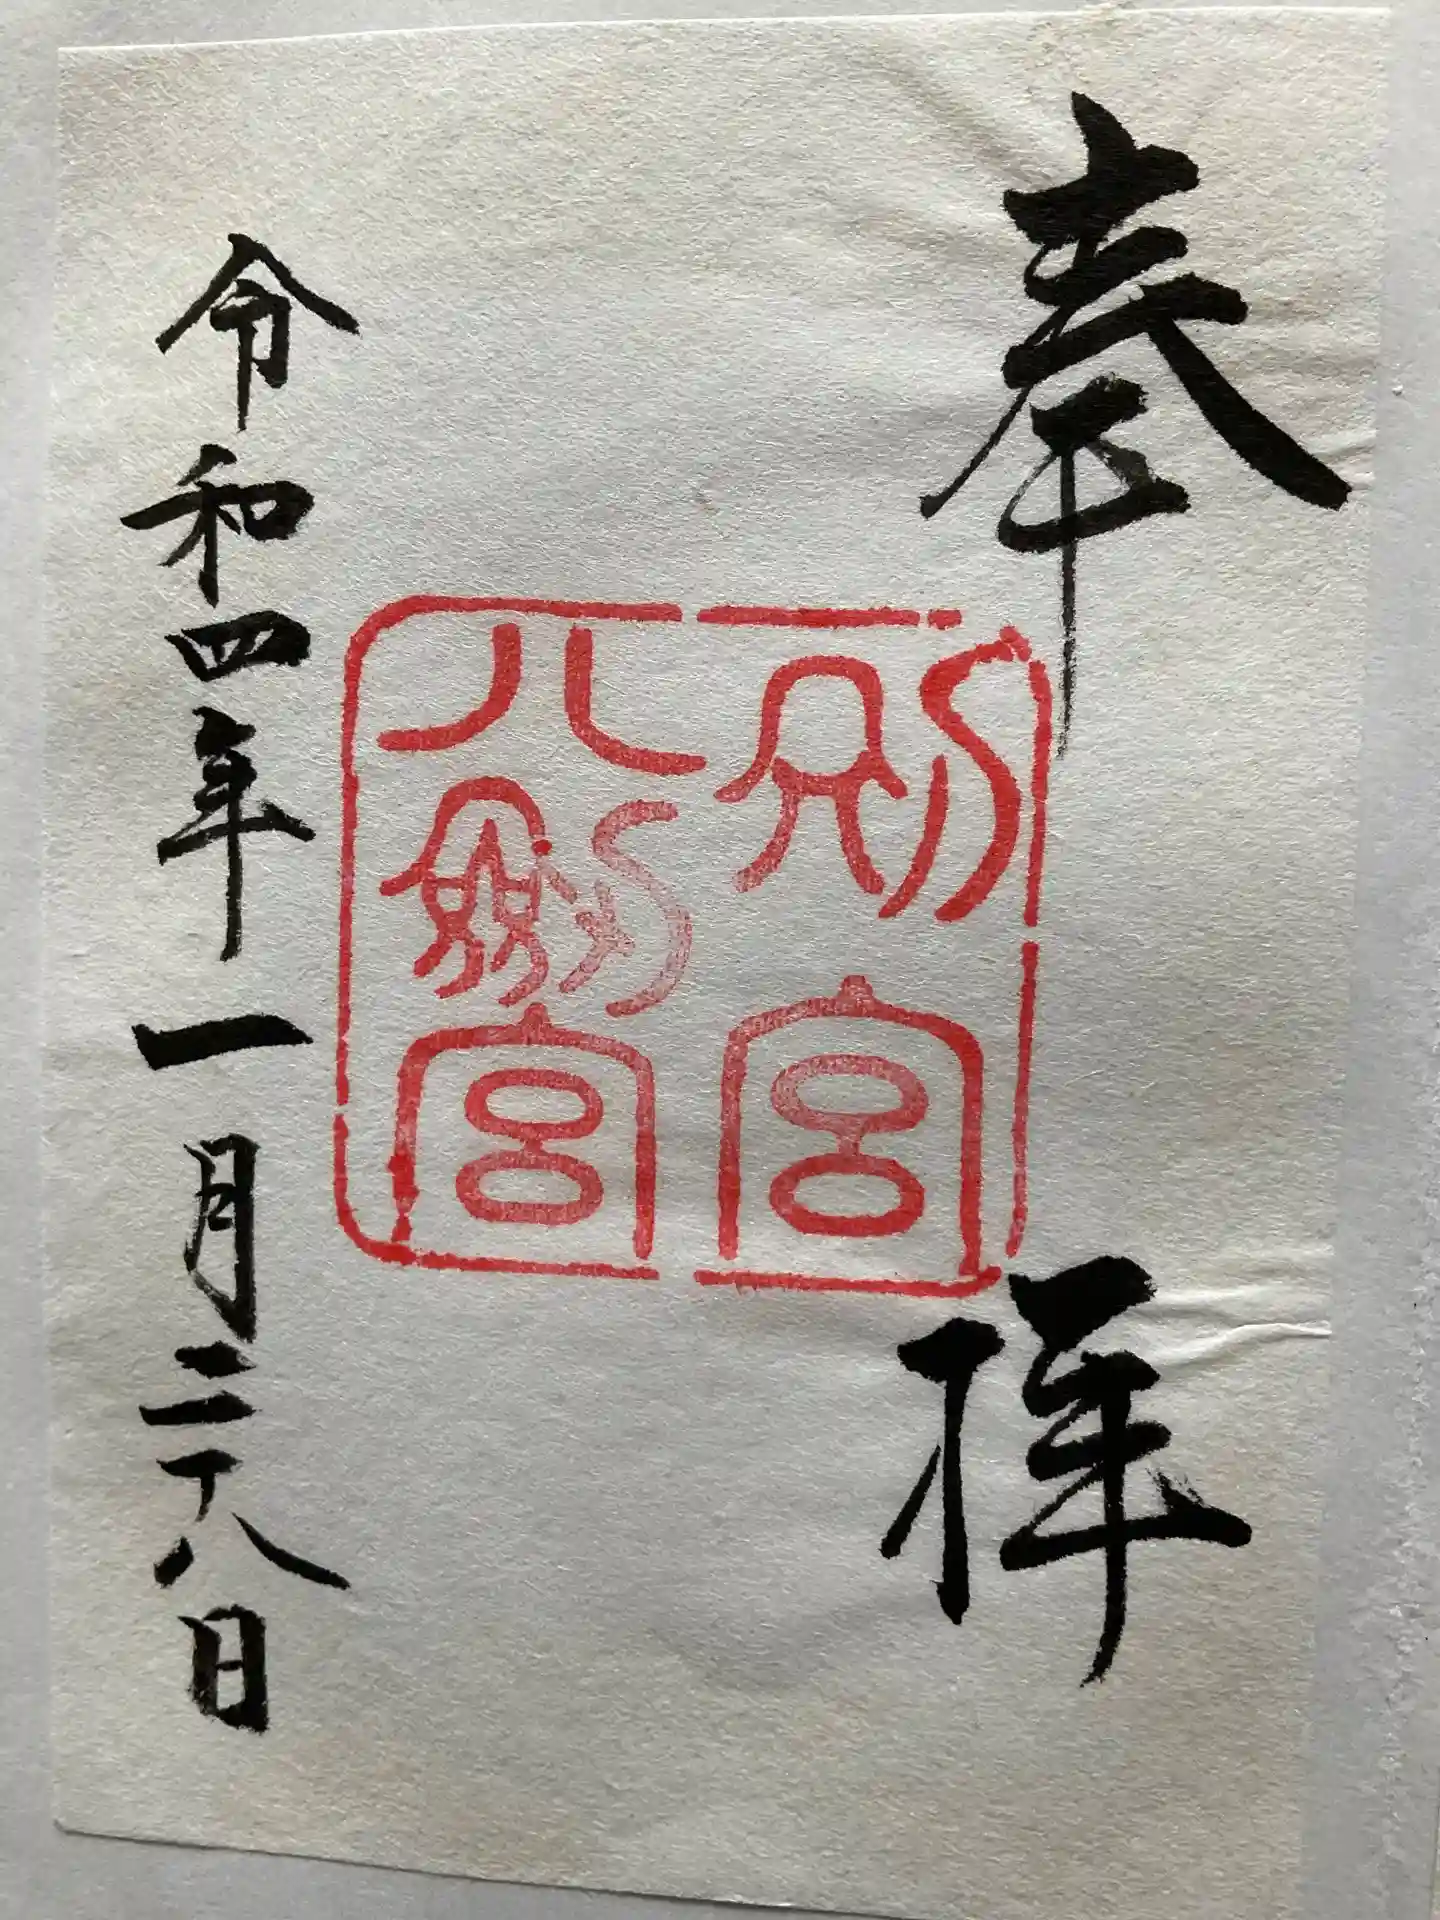 奉拝
別宮
八劔宮
令和四年一月二十八日